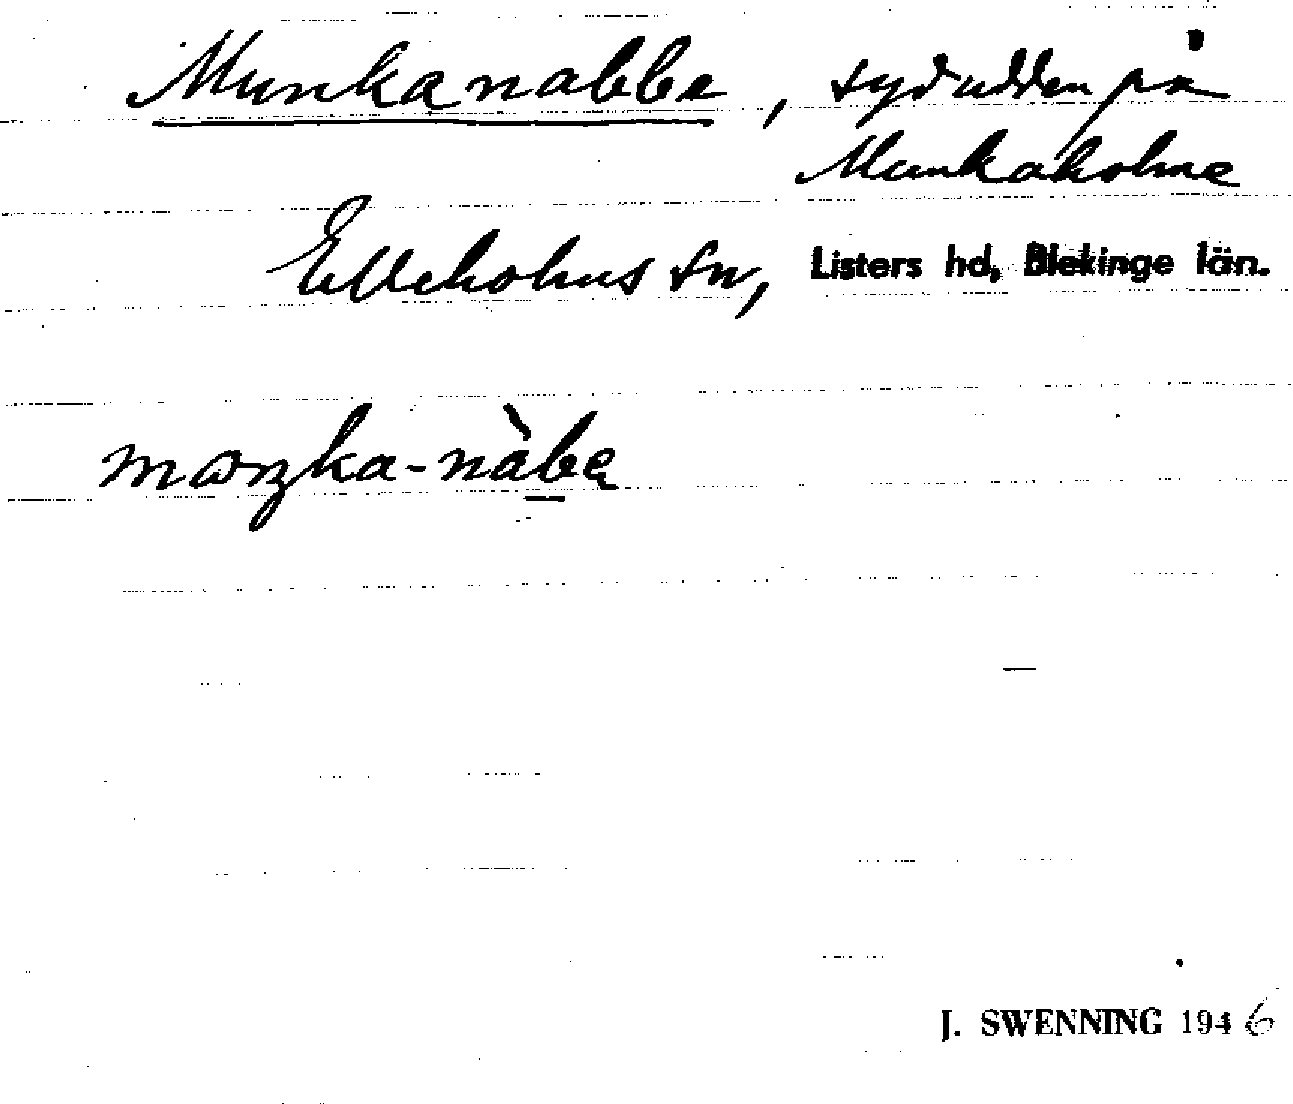 Munkanabbe, sydudden på
Munkaholme
Elleholms sn, Listers hd, Blekinge län.
maŋka-nàbe
J. SWENNING 1946